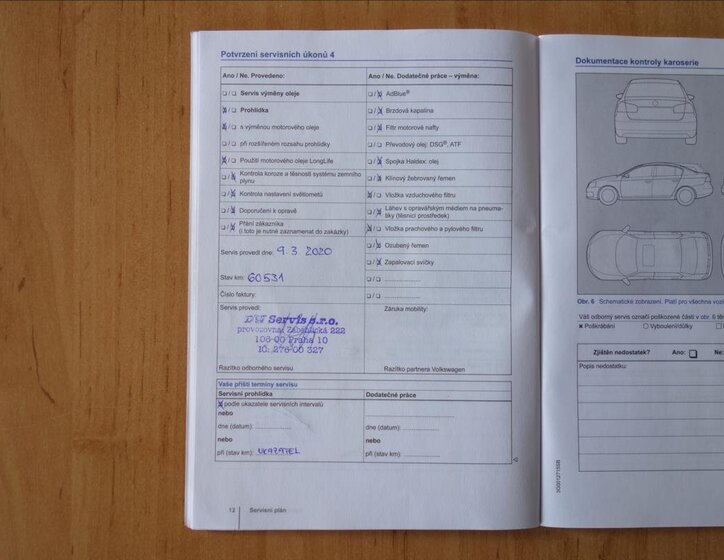 Potvrzení servisních úkonů 4
Ano / Ne. Provedeno:
Servis výměny oleje
Prohlídka
s výměnou motorového oleje
při rozšířeném rozsahu prohlídky
Použití motorového oleje LongLife
Kontrola koroze a těsnosti systému zemního
plynu
Kontrola nastavení světlometů
Doporučení k opravě
Přání zákazníka
(i toto je nutné zaznamenat do zakázky)
Servis provedl dne: 9.3 2020
Stav km: 60531
Číslo faktury:
Servis provedl:
Servis s.r.o.
provozovna: Záběhlická 222
106 00 Praha 10
IČ: 276 00 327
Razítko odborného servisu
Ano / Ne. Dodatečné práce – výměna:
AdBlue®
Brzdová kapalina
Filtr motorové nafty
Převodový olej: DSG®, ATF
Spojka Haldex: olej
Klínový žebrovaný řemen
Vložka vzduchového filtru
Láhev s opravářským médiem na pneuma-
tiky (těsnicí prostředek)
Vložka prachového a pylového filtru
Ozubený řemen
Zapalovací svíčky
Záruka mobility:
Razítko partnera Volkswagen
Vaše příští termíny servisu
Servisní prohlídka
podle ukazatele servisních intervalů
nebo
dne (datum):
nebo
při (stav km): UKAZATEL
Dodatečné práce
dne (datum):
nebo
při (stav km):
12 Servisní plán
Dokumentace kontroly karoserie
Obr. 6 Schematické zobrazení. Platí pro všechna vozi
Váš odborný servis označí poškozené části v obr. 6 tě
Poškrábání Vyboulení/důlky
Zjištěn nedostatek? Ano:
Popis nedostatku: